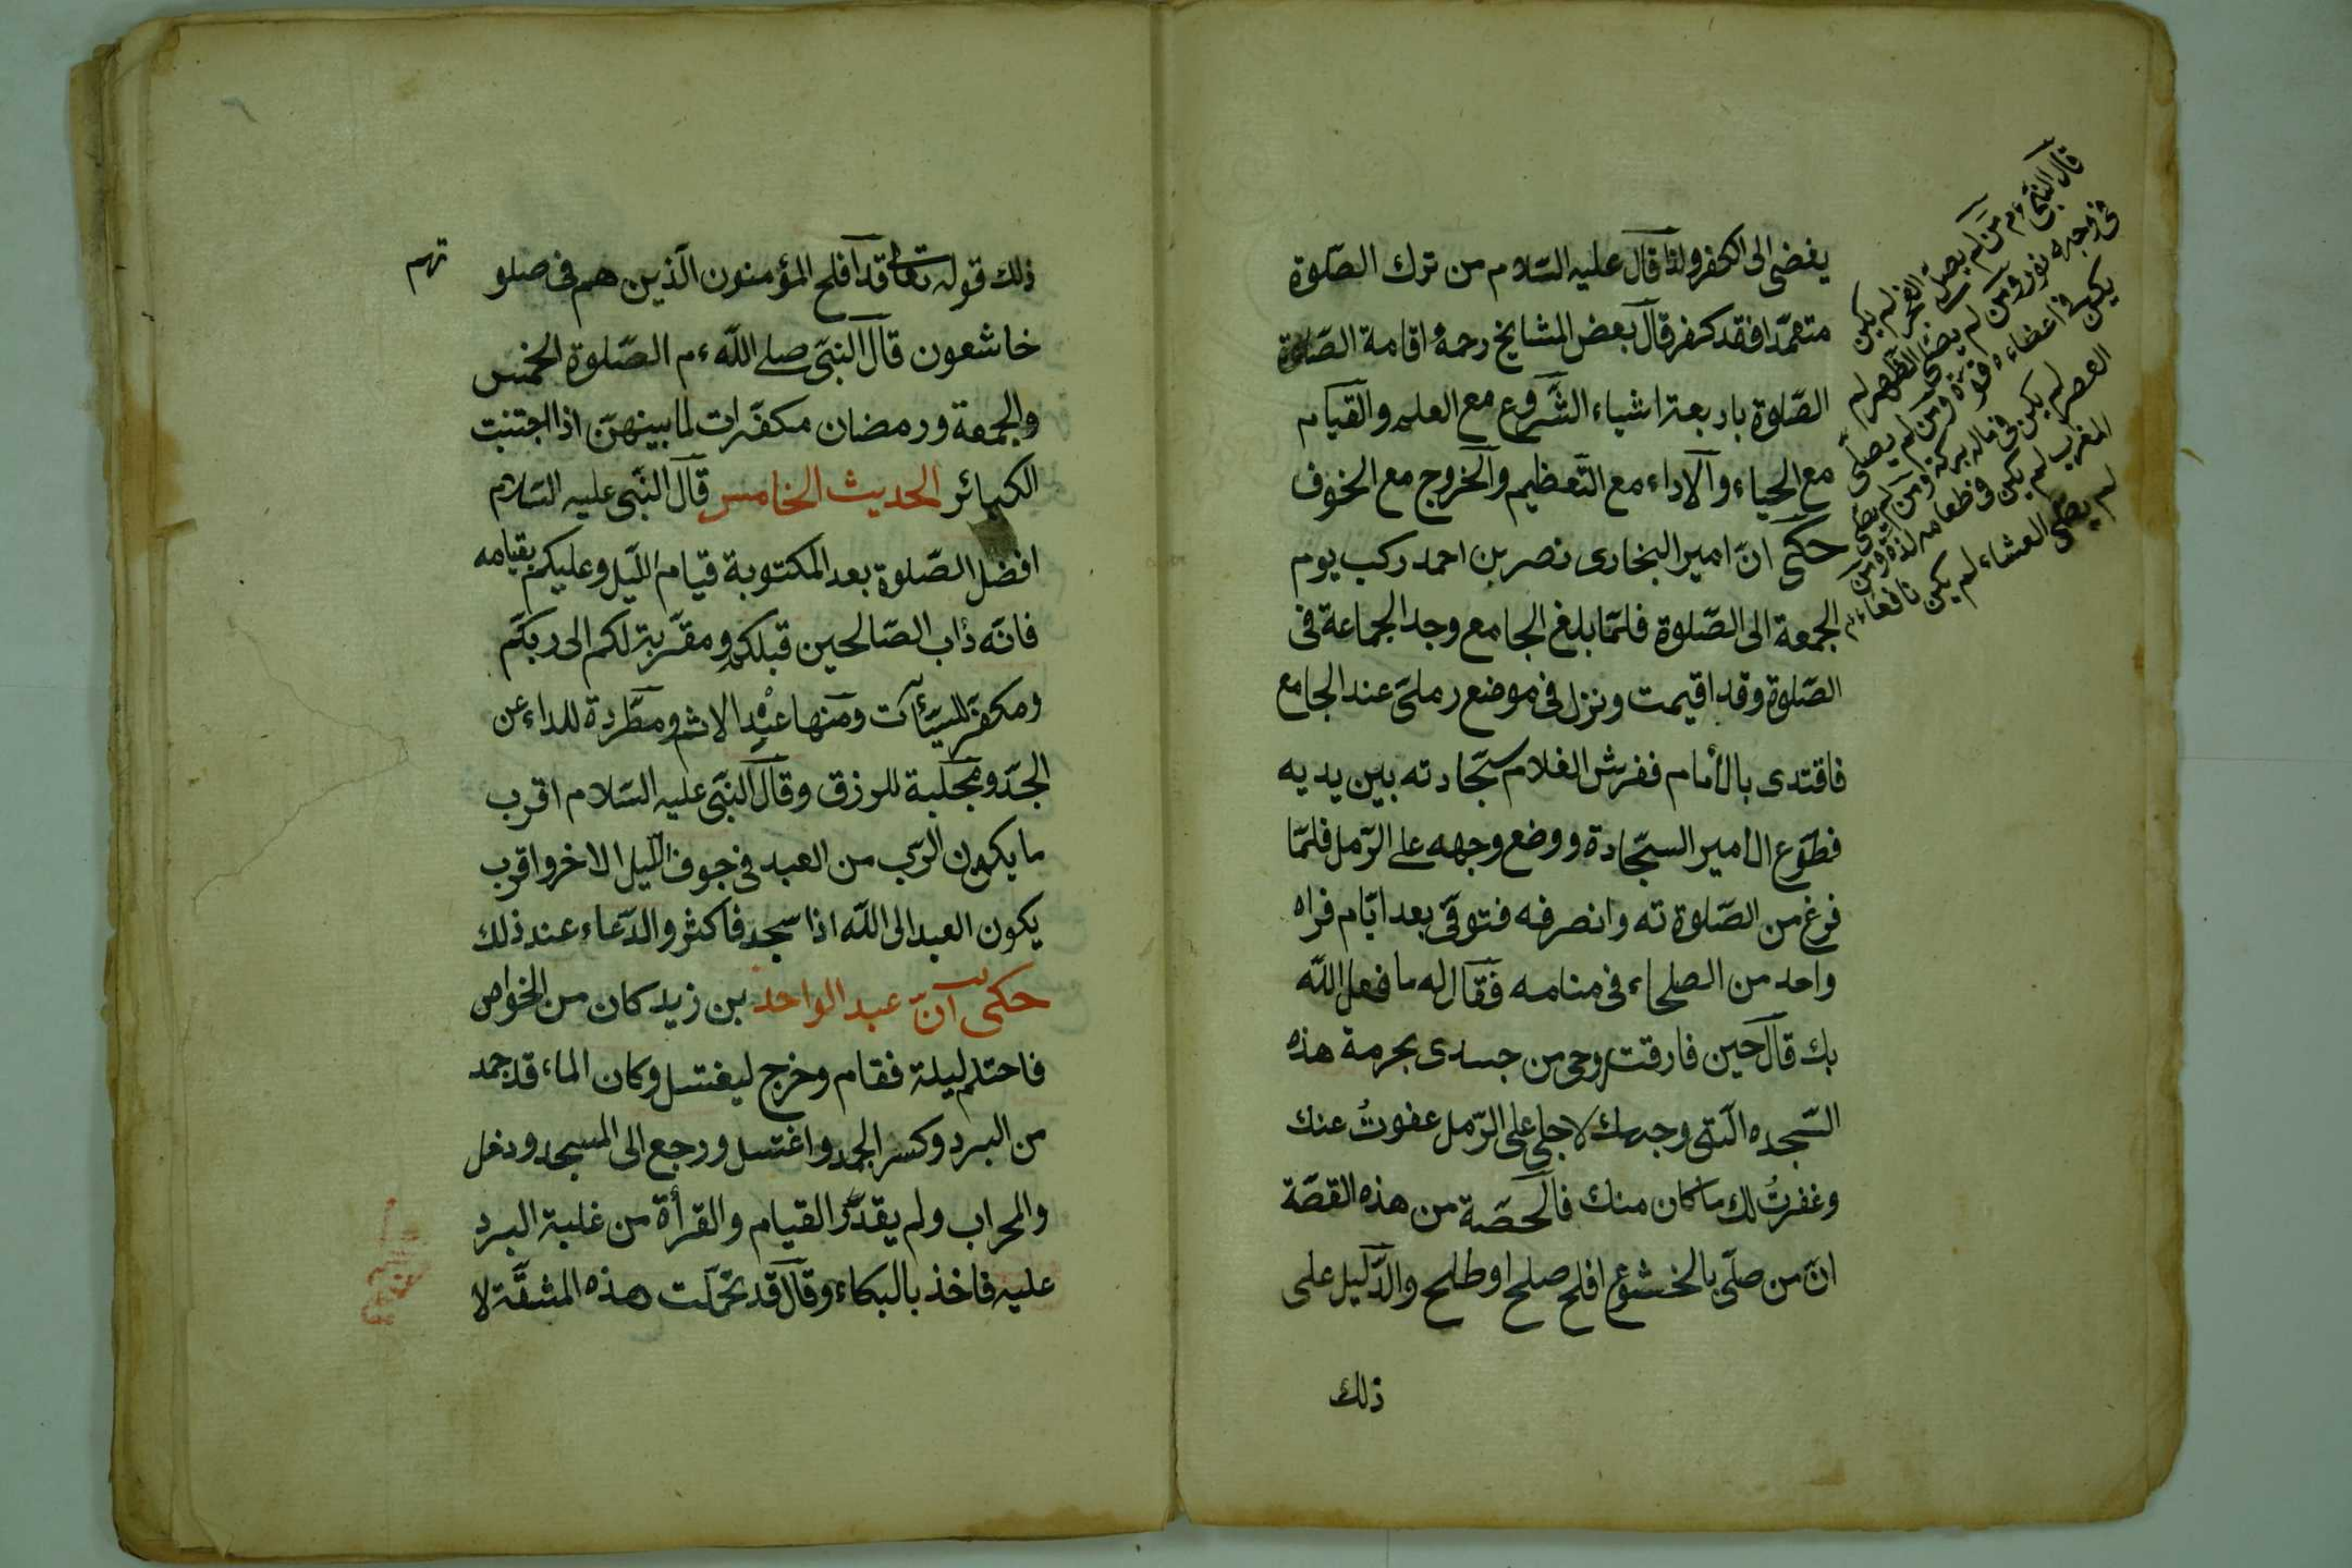 يفضى الى الكفر ولذا قال عليه السّلام من ترك الصّلوة
متعمّدا فقد كفر قال بعض المشايخ رحمهٔ اقامة الصّلوة
الصّلوة باربعة اشياء الشّروع مع العلم والقيام
مع الحياء والاداء مع التّعظيم والخروج مع الخوف
حكى انّ امير البخارى نصر بن احمد ركب يوم
الجمعة الى الصّلوة فلمّا بلغ الجامع وجد الجماعة فى
الصّلوة وقد اقيمت ونزل فى موضع رملىّ عند الجامع
فاقتدى بالأمام ففرش الغلام سجّادته بين يديه
فطوّع الامير السجّادة ووضع وجهه على الرّمل فلمّا
فرغ من الصّلوة ته وانصرفه فتوفّى بعد ايّام فراه
واحد من الصلحاء فى منامه فقال له ما فعل الله
بك قال حين فارقت روحى من جسدى بحرمة هذه
السّجده الّتى وجهك لاجلى على الرّمل عفوتُ عنك
وغفرتُ لك ما كان منك فالحصّة من هذه القصّة
انّ من صلّى بالخشوع افلح صلح او طلح والدّليل على
ذلك
قال النّبى ءم من لم يصلّ الفجر لم يكن
فى وجهه نور ومن لم يصلّى الظهر لم
يكن فى اعضاءه قوّة ومن لم يصلّى
العصر لم يكن فى ماله بركة ومن لم يصلّى
المغرب لم يكن فى طعامه لذّة ومن
لم يصلّى العشاء لم يكن نافعاء م
ذلك قوله تعالى قد افلح المؤمنون الّذين هم فى صلو
تهم
خاشعون قال النّبىّ صلى الله ءم الصّلوة الخمس
والجمعة ورمضان مكفّرات لما بينهنّ اذا اجتنبت
الكبائر الحديث الخامس قال النّبى عليه السّلام
افضل الصّلوة بعد المكتوبة قيام اللّيل وعليكم بقيامه
فانّه دُاب الصّالحين قبلكم ومقرّبة لكم الى ربّكم
ومكفّر للسيّأت ومنها عنْدِ الاثم ومطّردة للداء عن
الجسّد ومجلبة للرزق وقال النّبى عليه السّلام اقرب
ما يكون الرّب من العبد فى جوف اللّيل الاخر واقرب
يكون العبد الى الله اذا سجد فاكثر والدّعاء عند ذلك
حكى انّ عبد الواحد بن زيد كان من الخواص
فاحتلم ليلة فقام وخرج ليغتسل وكان الماء قد جمد
من البرد وكسر الجمد واغتسل ورجع الى المسجد ودخل
والمحراب ولم يقدّر القيام والقرأة من غلبة البرد
عليه فاخذ بالبكاء وقال قد تحمّلت هذه المشقّة لا